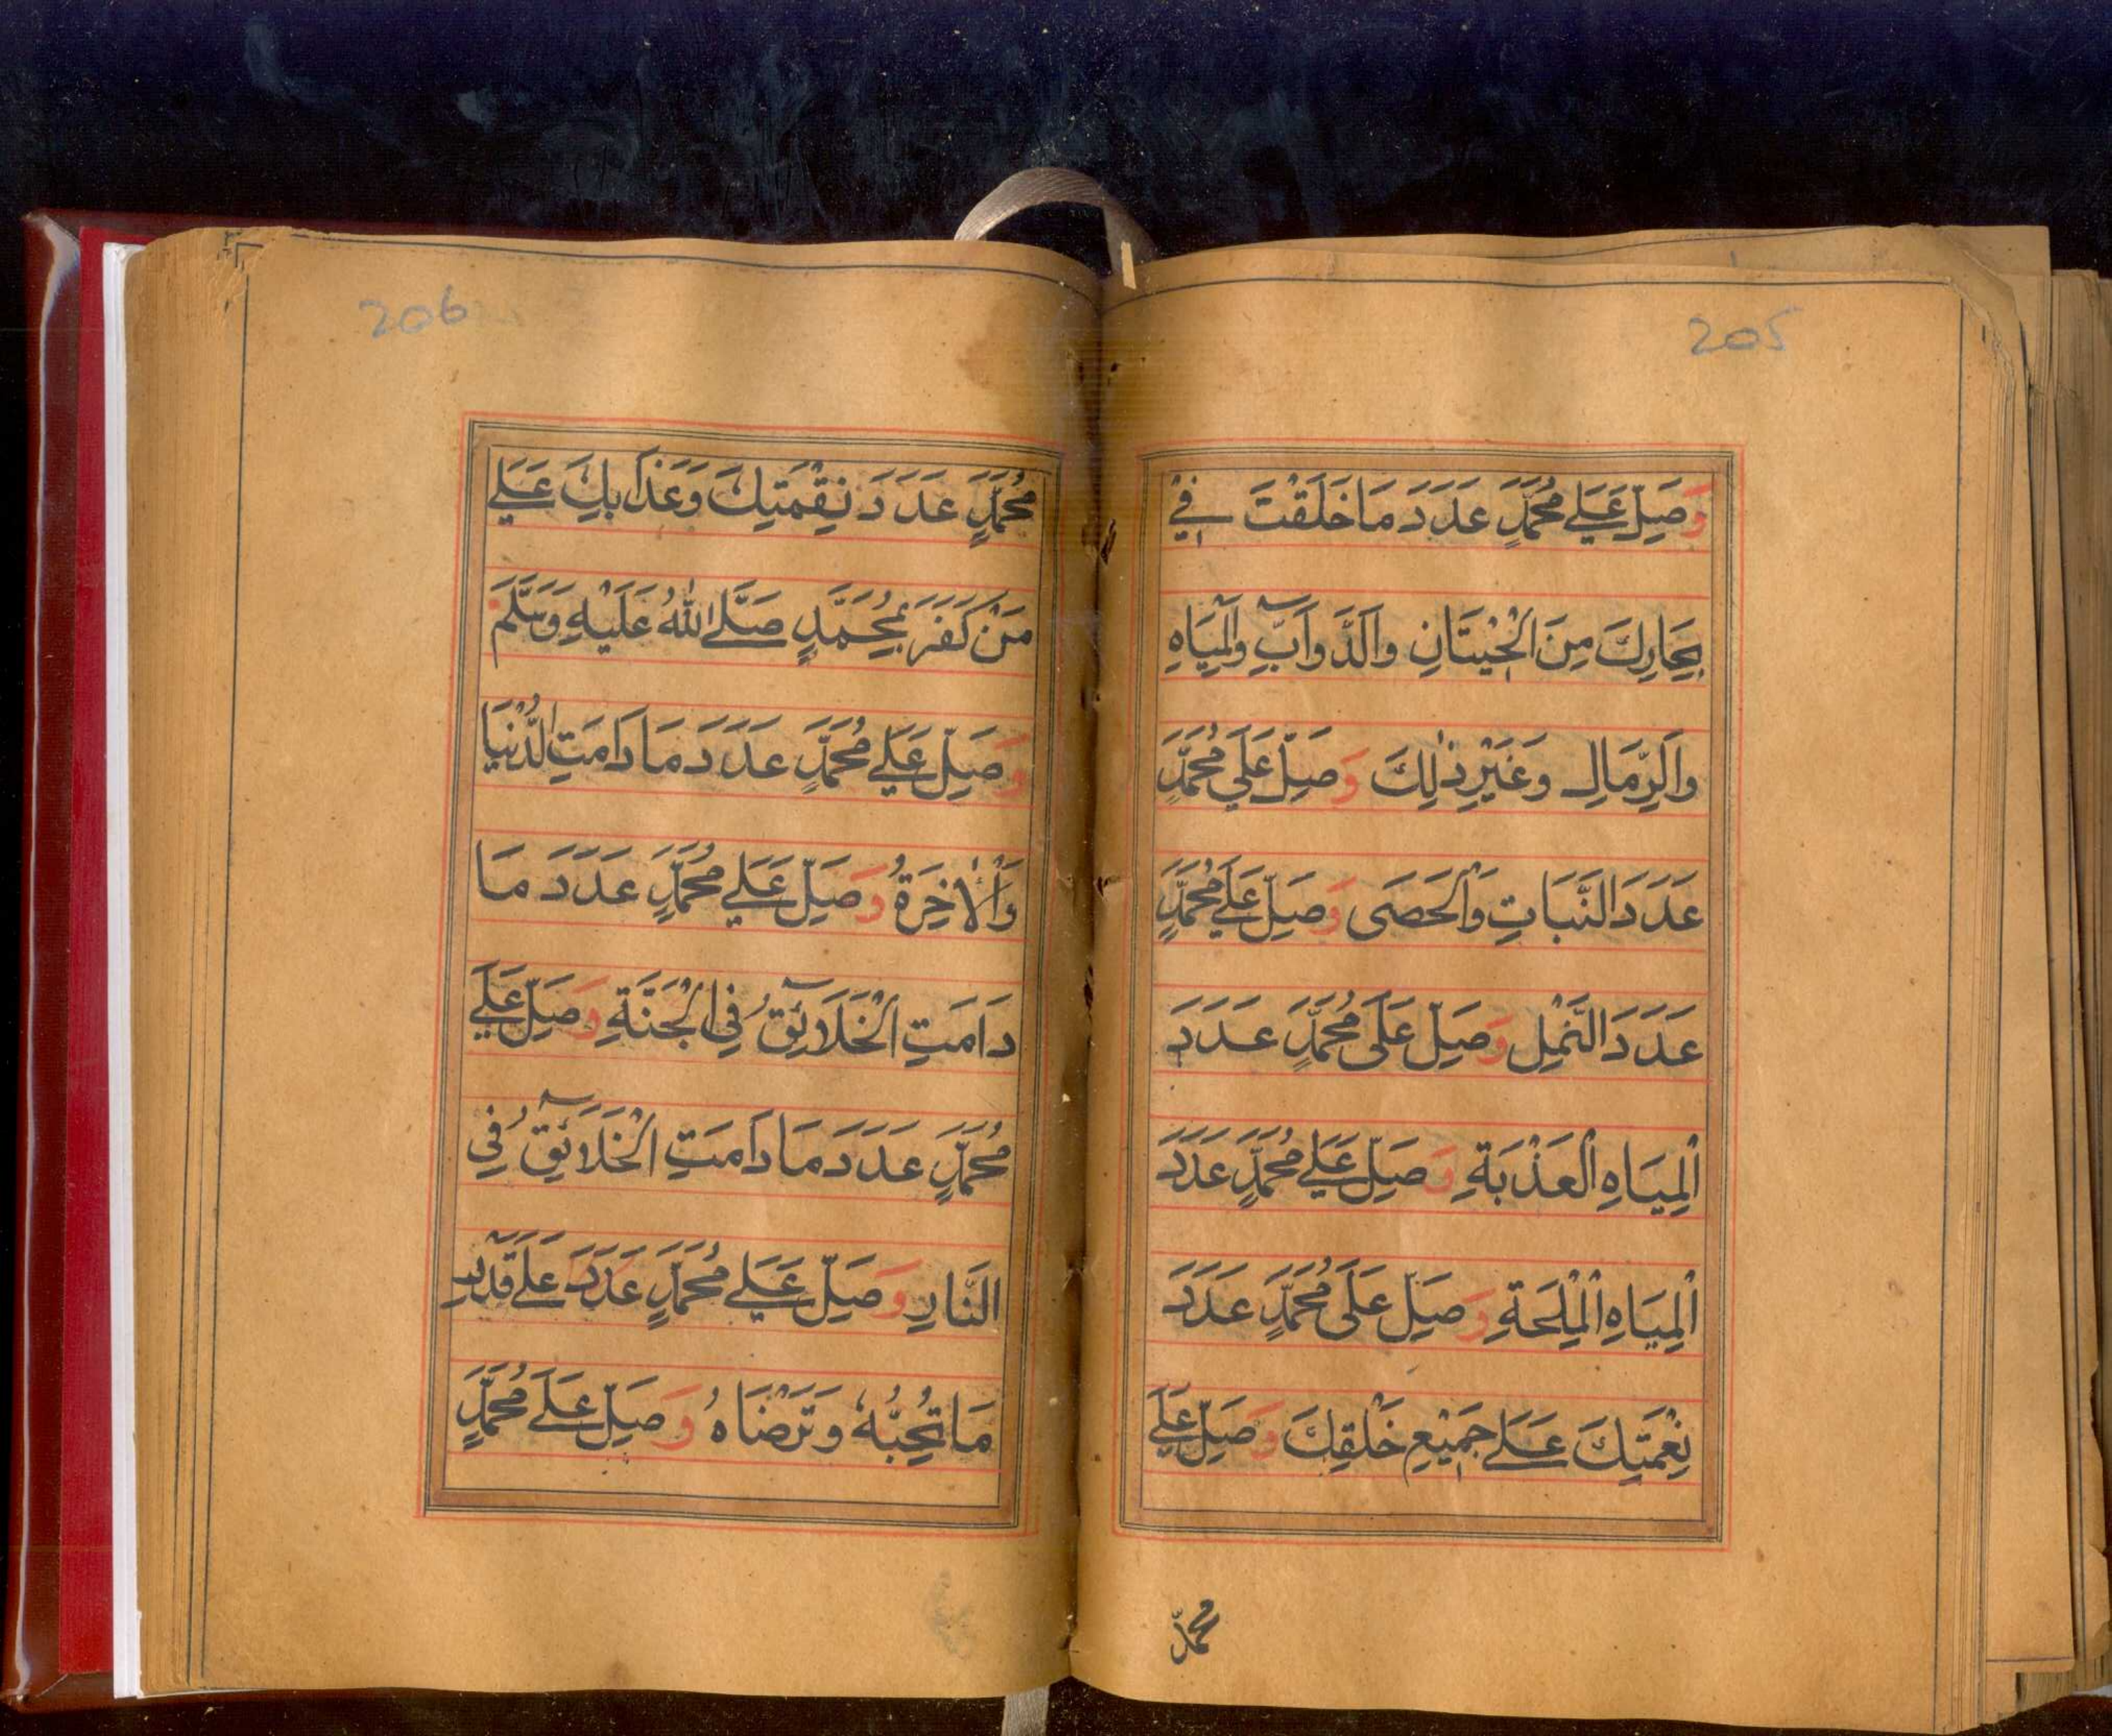 205
وَصَلِّ عَلٰى مُحَمَّدٍ عَدَدَ مَا خَلَقْتَ فِيْ
بِحَارِكَ مِنَ الْحِيْتَانِ وَالدَّوَآبِّ وَالْمِيَاهِ
وَالرِّمَالِ وَغَيْرِ ذٰلِكَ وَصَلِّ عَلٰى مُحَمَّدٍ
عَدَدَ النَّبَاتِ وَالْحَصَى وَصَلِّ عَلٰى مُحَمَّدٍ
عَدَدَ النَّمْلِ وَصَلِّ عَلَى مُحَمَّدٍ عَدَدَ
الْمِيَاهِ الْعَذْبَةِ وَصَلِّ عَلٰى مُحَمَّدٍ عَدَدَ
الْمِيَاهِ الْمِلْحَةِ وَصَلِّ عَلَى مُحَمَّدٍ عَدَدَ
نِعْمَتِكَ عَلٰى جَمِيْعِ خَلْقِكَ وَصَلِّ عَلٰى
محمّد
206
مُحَمَّدٍ عَدَدَ نِقْمَتِكَ وَعَذَابِكَ عَلٰى
مَنْ كَفَرَ بِمُحَمَّدٍ صَلَّى اللّٰهُ عَلَيْهِ وَسَلَّمَ
وَصَلِّ عَلٰى مُحَمَّدٍ عَدَدَ مَا دَامَتِ الدُّنْيَا
وَالْاٰخِرَةُ وَصَلِّ عَلٰى مُحَمَّدٍ عَدَدَ مَا
دَامَتِ الْخَلَآئِقُ فِي الْجَنَّةِ وَصَلِّ عَلٰى
مُحَمَّدٍ عَدَدَ مَا دَامَتِ الْخَلَآئِقُ فِي
النَّارِ وَصَلِّ عَلٰى مُحَمَّدٍ عَدَدَ عَلٰى قَدْرِ
مَا تُحِبُّهٗ وَتَرْضَاهُ وَصَلِّ عَلٰى مُحَمَّدٍ